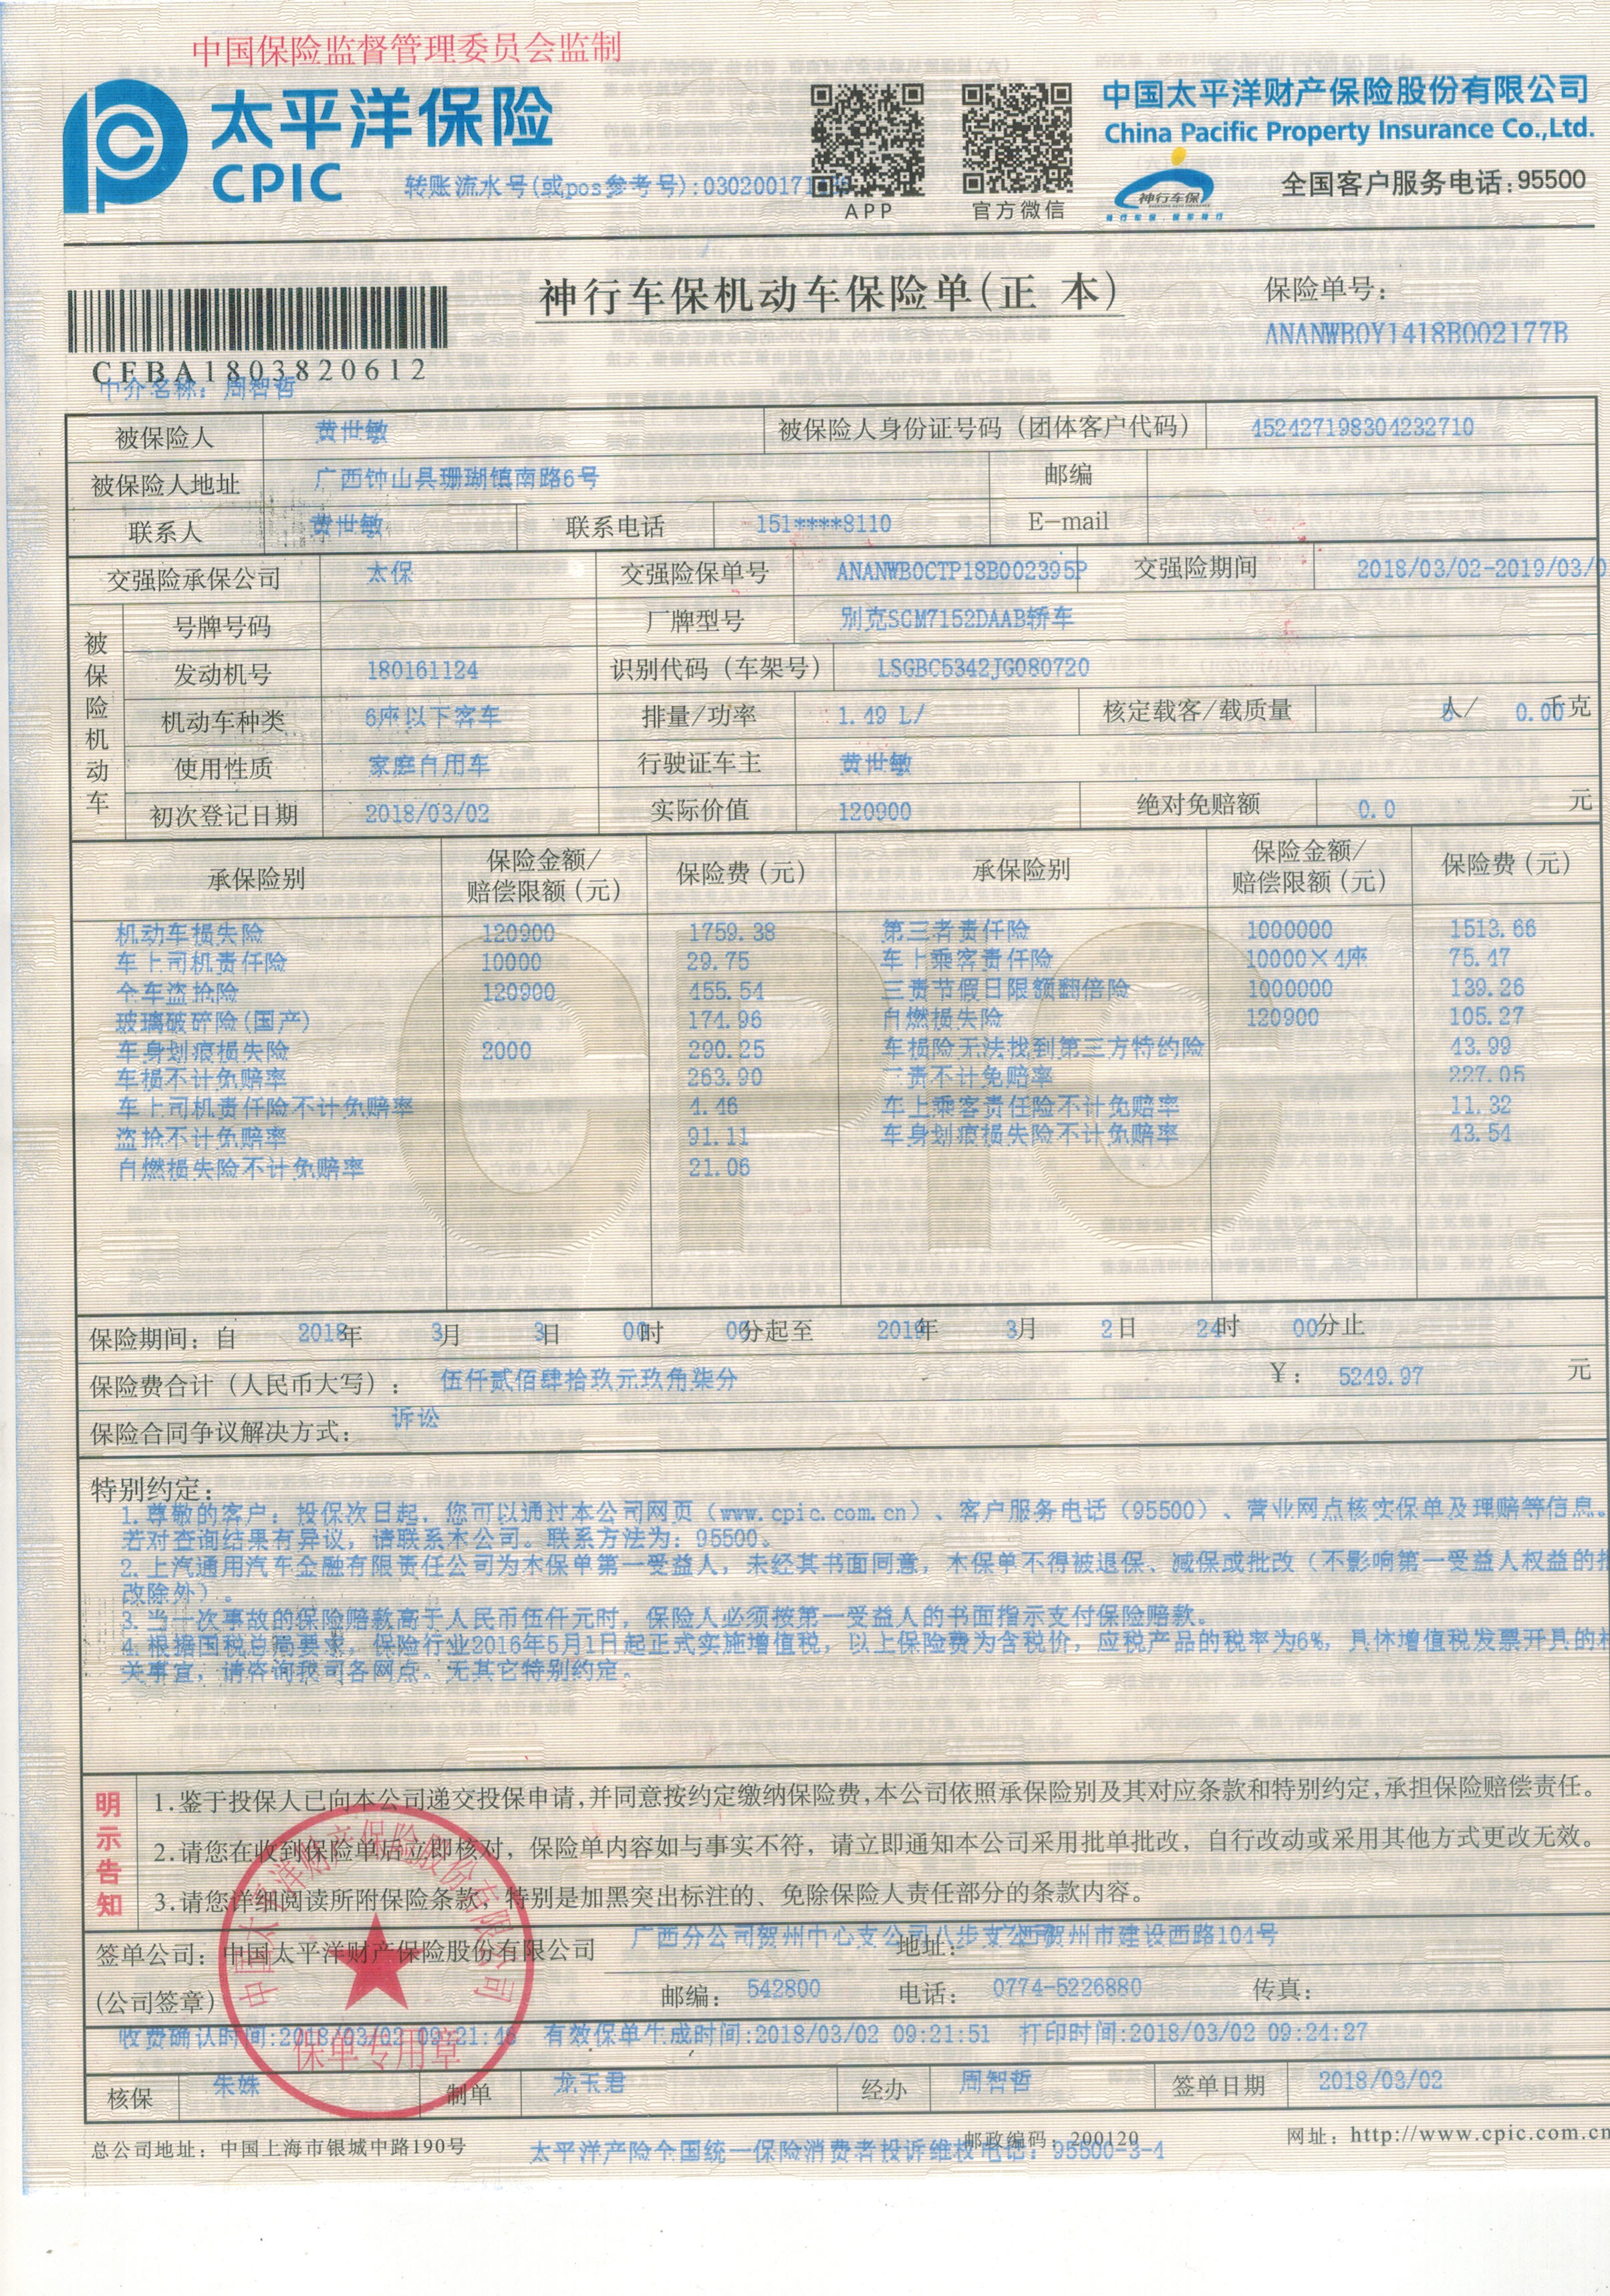 中国保险监督管理委员会监制
太平洋保险
CPIC
转账流水号(或pos参考号):030200171
APP
官方微信
中国太平洋财产保险股份有限公司
China Pacific Property Insurance Co.,Ltd.
神行车保
全国客户服务电话:95500
神行车保机动车保险单(正 本)
保险单号:
ANANWB0Y1418B002177B
CEBA1803820612
中介名称: 周智哲
被保险人 黄世敏 被保险人身份证号码(团体客户代码) 452427198304232710
被保险人地址 广西钟山县珊瑚镇南路6号 邮编
联系人 黄世敏 联系电话 151****8110 E-mail
交强险承保公司 太保 交强险保单号 ANANWB0CTP18B002395P 交强险期间 2018/03/02-2019/03/0
被保险机动车
号牌号码 厂牌型号 别克SGM7152DAAB轿车
发动机号 180161124 识别代码(车架号) LSGBC5342JG080720
机动车种类 6座以下客车 排量/功率 1.49 L/ 核定载客/载质量 人/ 0.00千克
使用性质 家庭自用车 行驶证车主 黄世敏
初次登记日期 2018/03/02 实际价值 120900 绝对免赔额 0.0 元
承保险别 保险金额/赔偿限额(元) 保险费(元) 承保险别 保险金额/赔偿限额(元) 保险费(元)
机动车损失险 120900 1759.38 第三者责任险 1000000 1513.66
车上司机责任险 10000 29.75 车上乘客责任险 10000×4座 75.47
全车盗抢险 120900 455.54 三责节假日限额翻倍险 1000000 139.26
玻璃破碎险(国产) 174.96 自燃损失险 120900 105.27
车身划痕损失险 2000 290.25 车损险无法找到第三方特约险 43.99
车损不计免赔率 263.90 三责不计免赔率 227.05
车上司机责任险不计免赔率 4.46 车上乘客责任险不计免赔率 11.32
盗抢不计免赔率 91.11 车身划痕损失险不计免赔率 43.54
自燃损失险不计免赔率 21.06
保险期间: 自 2018年 3月 3日 00时 00分起至 2019年 3月 2日 24时 00分止
保险费合计(人民币大写): 伍仟贰佰肆拾玖元玖角柒分 ¥: 5249.97 元
保险合同争议解决方式: 诉讼
特别约定:
1.尊敬的客户:投保次日起,您可以通过本公司网页(www.cpic.com.cn)、客户服务电话(95500)、营业网点核实保单及理赔等信息。
若对查询结果有异议,请联系本公司。联系方法为:95500。
2.上汽通用汽车金融有限责任公司为本保单第一受益人,未经其书面同意,本保单不得被退保、减保或批改(不影响第一受益人权益的批
改除外)。
3.当一次事故的保险赔款高于人民币伍仟元时,保险人必须按第一受益人的书面指示支付保险赔款。
4.根据国税总局要求,保险行业2016年5月1日起正式实施增值税,以上保险费为含税价,应税产品的税率为6%,具体增值税发票开具的相
关事宜,请咨询我司各网点。无其它特别约定。
明示告知
1.鉴于投保人已向本公司递交投保申请,并同意按约定缴纳保险费,本公司依照承保险别及其对应条款和特别约定,承担保险赔偿责任。
2.请您在收到保险单后立即核对,保险单内容如与事实不符,请立即通知本公司采用批单批改,自行改动或采用其他方式更改无效。
3.请您详细阅读所附保险条款,特别是加黑突出标注的、免除保险人责任部分的条款内容。
签单公司: 中国太平洋财产保险股份有限公司 广西分公司贺州中心支公司八步支公司 地址: 广西贺州市建设西路104号
(公司签章) 邮编: 542800 电话: 0774-5226880 传真:
中国太平洋财产保险股份有限公司
保单专用章
收费确认时间:2018/03/02 09:21:46 有效保单生成时间:2018/03/02 09:21:51 打印时间:2018/03/02 09:24:27
核保 朱姝 制单 龙玉君 经办 周智哲 签单日期 2018/03/02
总公司地址: 中国上海市银城中路190号 邮政编码: 200120 网址: http://www.cpic.com.cn
太平洋产险全国统一保险消费者投诉维权电话: 95500-3-4